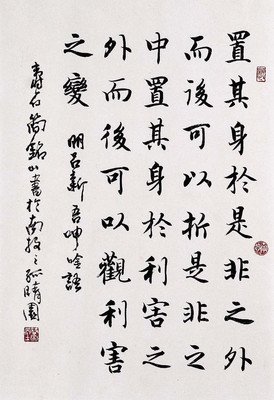 置其身於是非之外
而後可以折是非之
中置其身於利害之
外而後可以觀利害
之變 明呂新吾呻吟語
簡銘山書於南投之晴園